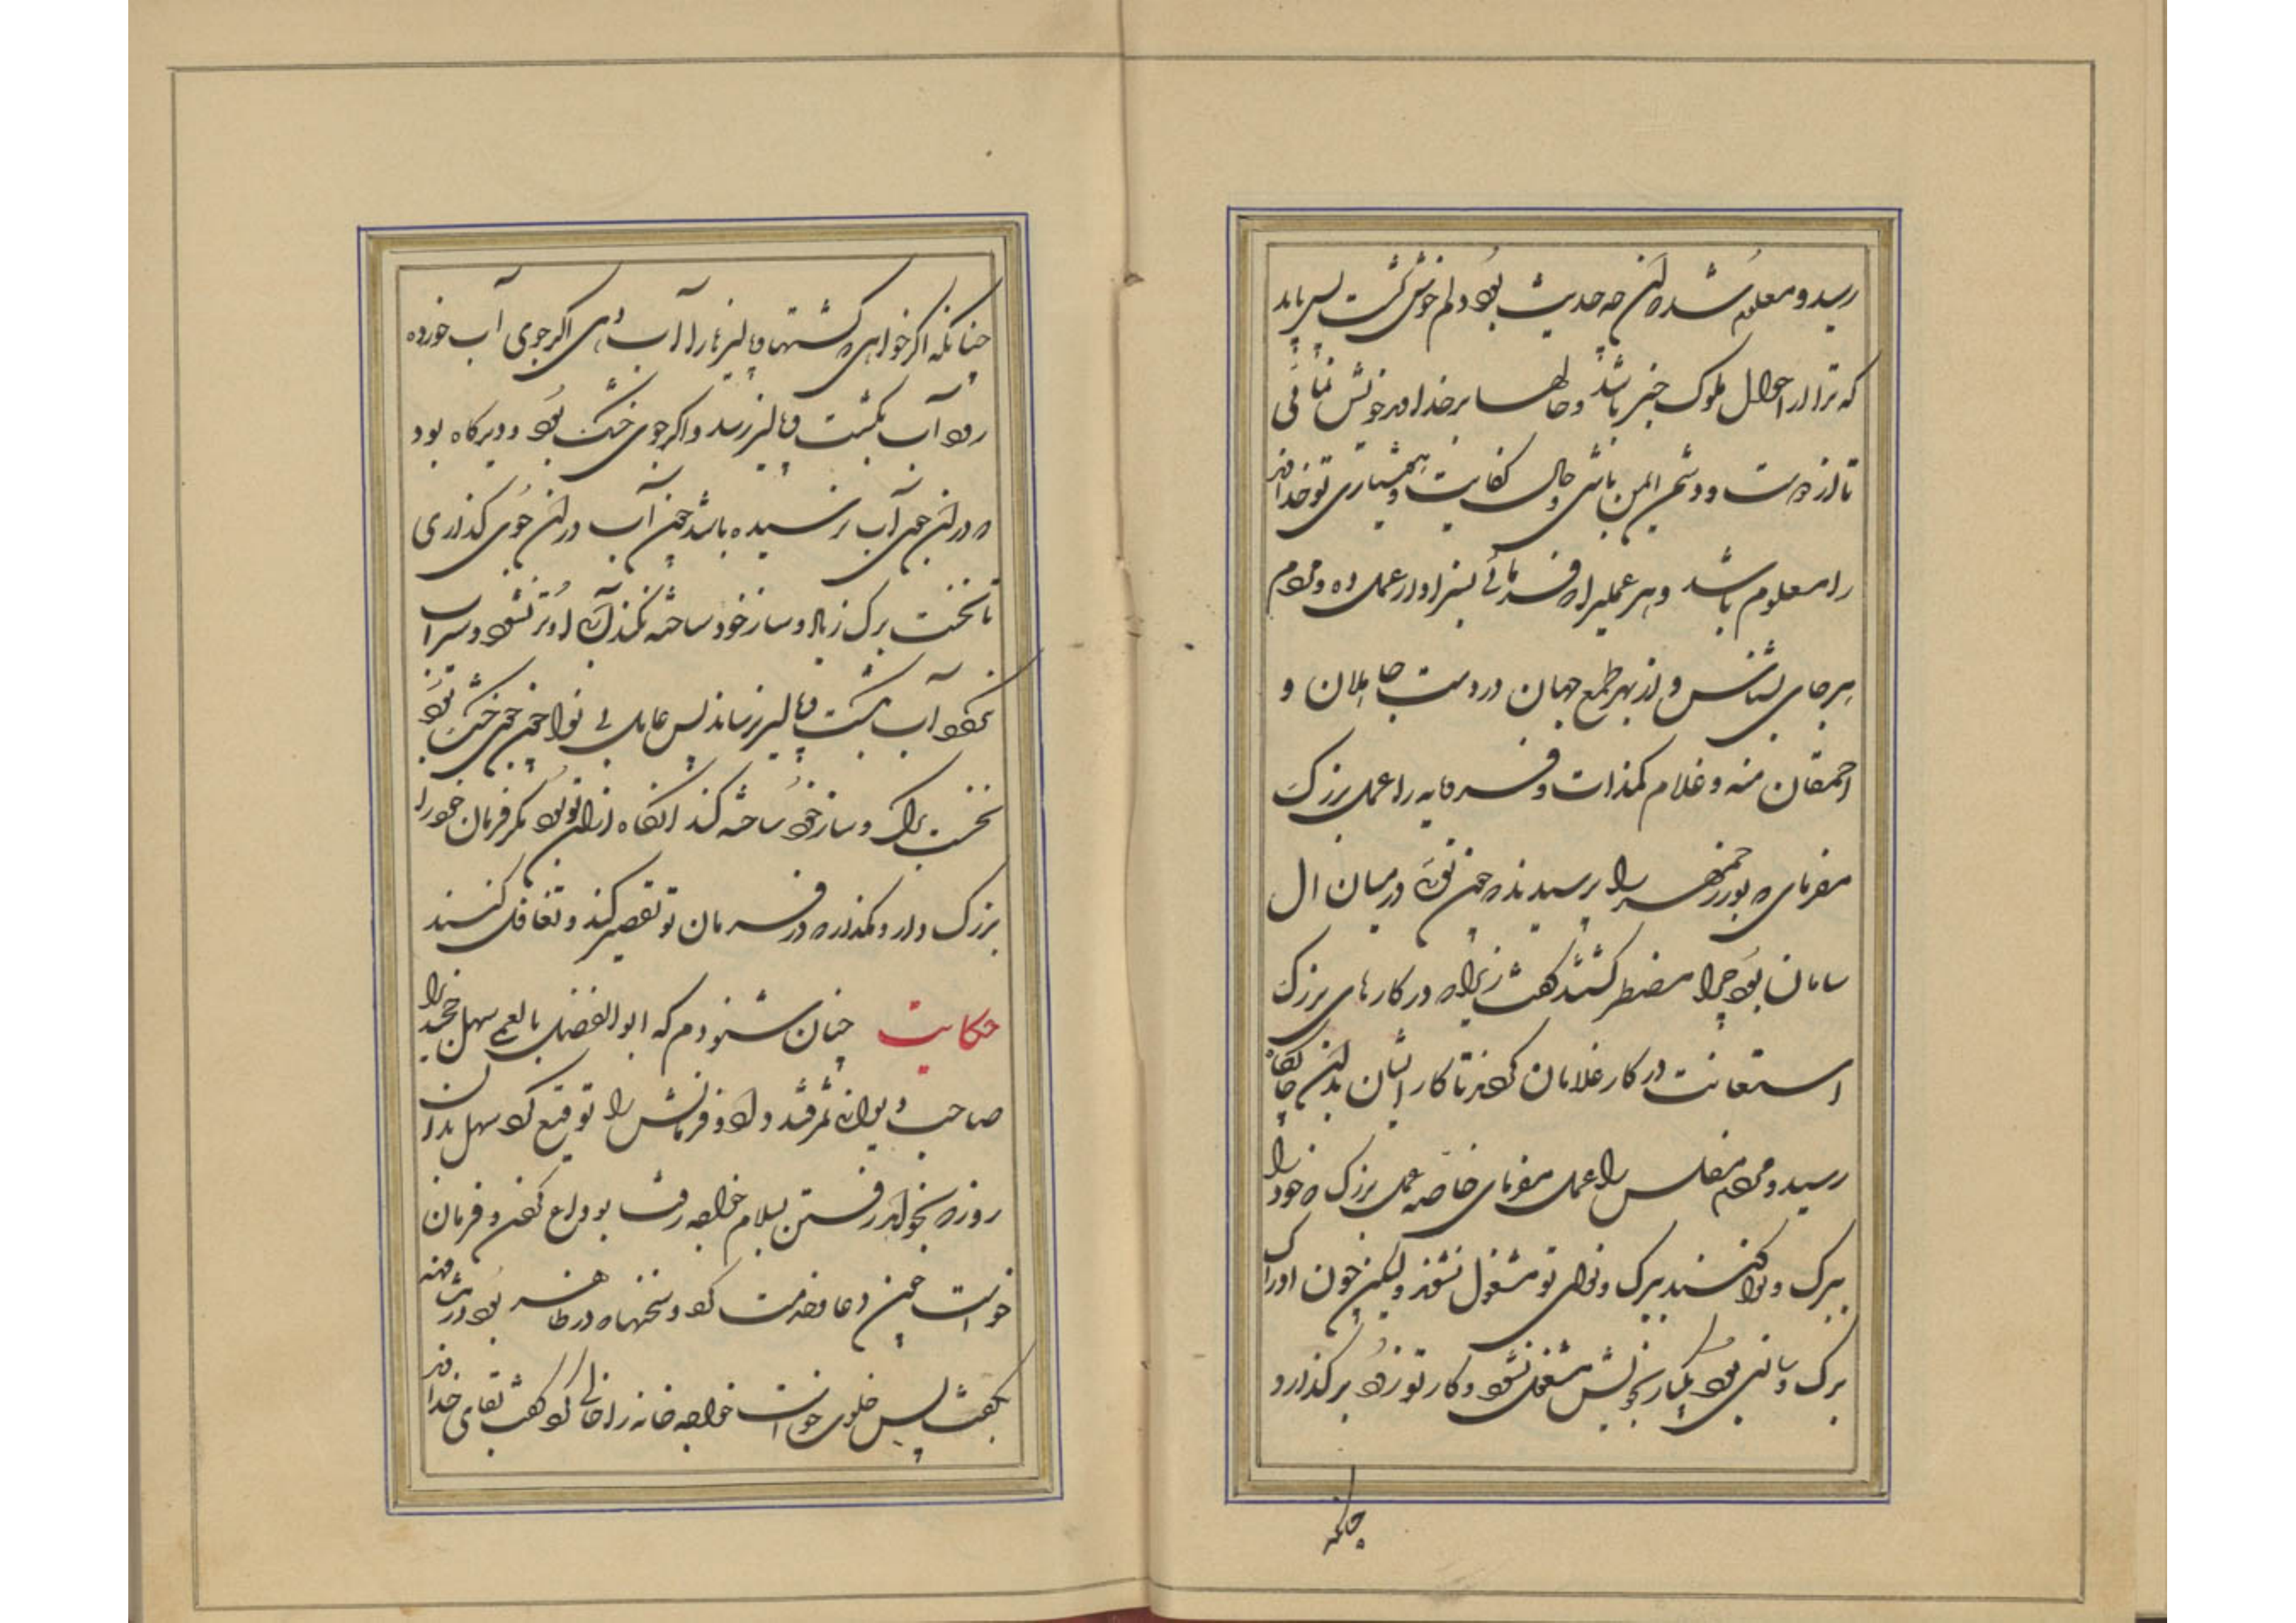 رسید و معلوم شد که این چه حدیث بود دلم خوش گشت پس باید
که ترا از احوال ملوک خبر باشد و حالها بر خداوند خویش
تا از دوست و دشمن ایمن باشی و حال کفایت و هشیاری تو خداوند
را معلوم باشد و هر عملیرا که فرمائی بسزاوار عمل ده و مردم
بهر جای بشناس و از بهر طمع جهان در دست جاهلان و
احمقان منه و غلام کمذات و فرومایه را عمل بزرگ
مفرمای که بوزرجمهر را پرسیدند که چون توئی در میان ال
سامان بود چرا مضطر گشتند گفت زیرا که در کارهای بزرگ
استعانت در کار غلامان کردند تا کار ایشان بدین جایگاه
رسید و مردم مفلس را عمل مفرمای خاصه عمل بزرگ که خود را
ببرگ و نوا کنند ببرگ و نوای تو مشغول نشوند ولیکن چون او را
برگ و سازی بود یکبار بخویش مشغول نشود و کار تو زود برگذارد
چنانکه
چنانکه اگر خواهی که کشتها و پالیزها را آب دهی اگر جوی آب خورده
رود آب بکشت و پالیز رسد و اگر جوی خشک بود و دیرگاه بود
که در این جوی آب نرسیده باشد چون آب در این جوی گذاری
تا نخست برگ و ساز خود ساخته نکند که او تر نشود و سیراب
نگردد آب بکشت و پالیز نرساند پس عامل بی نوا چون جوی خشک بود
نخست برگ و ساز خود ساخته کند انگاه ازان تو بود مگر فرمان خود را
بزرگ دار و مگذار که در فرمان تو تقصیر کند و تغافل کنند
حکایت چنان شنودم که ابوالفضل بالعمی سهل خجندی را
صاحب دیوانی سمرقند داد و فرمانش را توقیع کرد سهل بدان
روز که بخواهد رفتن بسلام خواجه رفت بوداع کردن و فرمان
خواست چون دعا و خدمت کرد و سخنها که در ظاهر بود
بگفت پس خلوی خواست خواجه خانه را خالی کرد گفت بقای خداوند